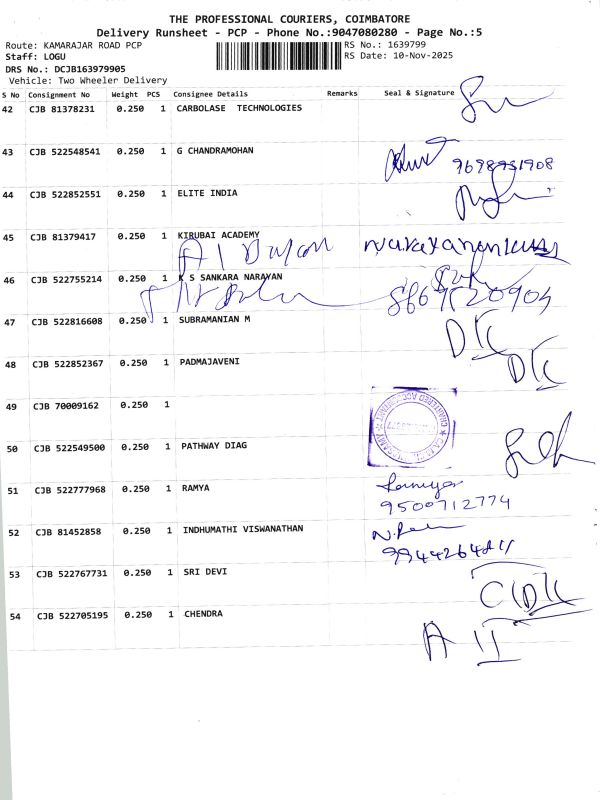 THE PROFESSIONAL COURIERS, COIMBATORE
Delivery Runsheet - PCP - Phone No.:9047080280 - Page No.:5
Route: KAMARAJAR ROAD PCP
RS No.: 1639799
Staff: LOGU
RS Date: 10-Nov-2025
DRS No.: DCJB163979905
Vehicle: Two Wheeler Delivery
S No Consignment No Weight PCS Consignee Details Remarks Seal & Signature
42 CJB 81378231 0.250 1 CARBOLASE TECHNOLOGIES
43 CJB 522548541 0.250 1 G CHANDRAMOHAN
44 CJB 522852551 0.250 1 ELITE INDIA
45 CJB 81379417 0.250 1 KIRUBAI ACADEMY
46 CJB 522755214 0.250 1 K S SANKARA NARAYAN
47 CJB 522816608 0.250 1 SUBRAMANIAN M
48 CJB 522852367 0.250 1 PADMAJAVENI
49 CJB 70009162 0.250 1
CHARTERED ACCOUNTANT
50 CJB 522549500 0.250 1 PATHWAY DIAG
51 CJB 522777968 0.250 1 RAMYA
9500712774
52 CJB 81452858 0.250 1 INDHUMATHI VISWANATHAN
53 CJB 522767731 0.250 1 SRI DEVI
54 CJB 522705195 0.250 1 CHENDRA